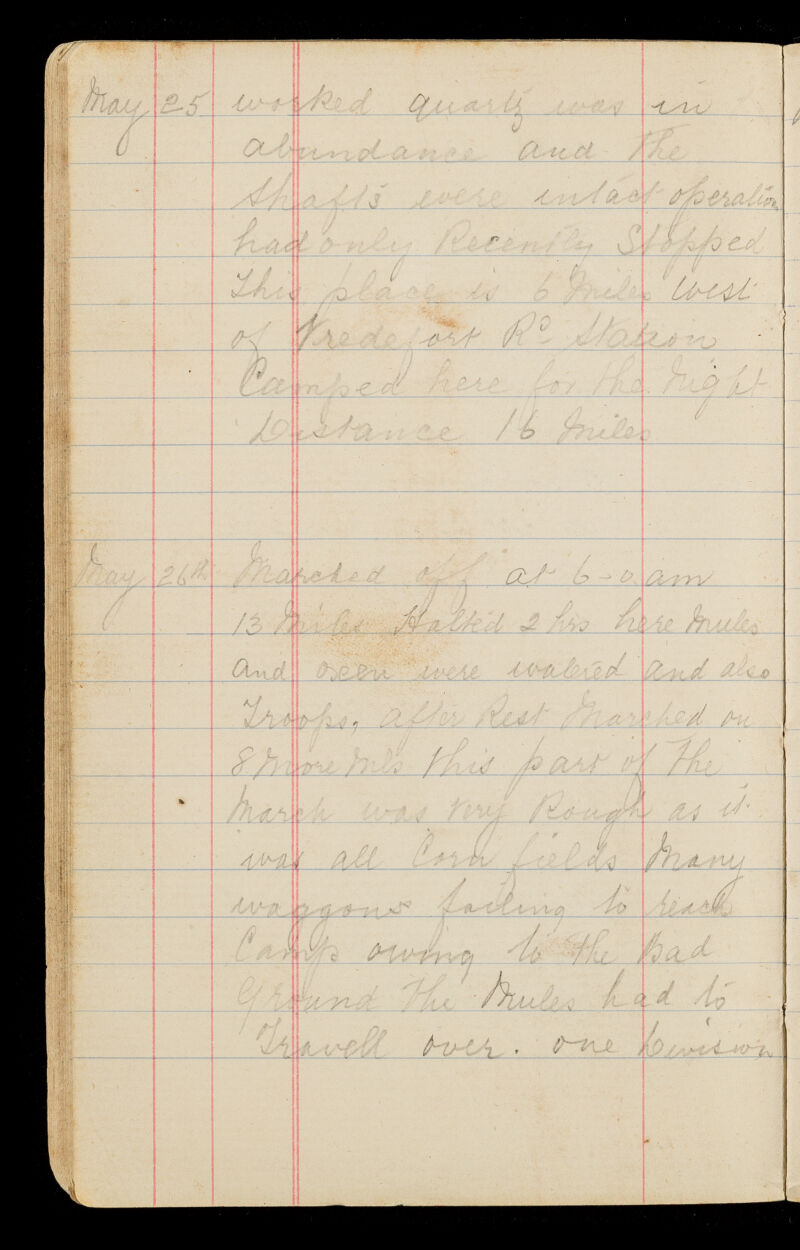 May 25 worked quartz was in
abundance and the
shafts were intact operation
had only Recently Stopped
This place is 6 Miles West
of Vredefort Rd Station
Camped here for the Night
Distance 16 Miles
May 26th Marched off at 6-0 am
13 Miles Halted 2 hrs here Mules
and oxen were watered and also
Troops, after Rest Marched on
8 More Mls this part of The
March was Very Rough as it
was all Corn fields Many
waggons failing to reach
Camp owing to the Bad
Ground The Mules had to
Travell over. one Division